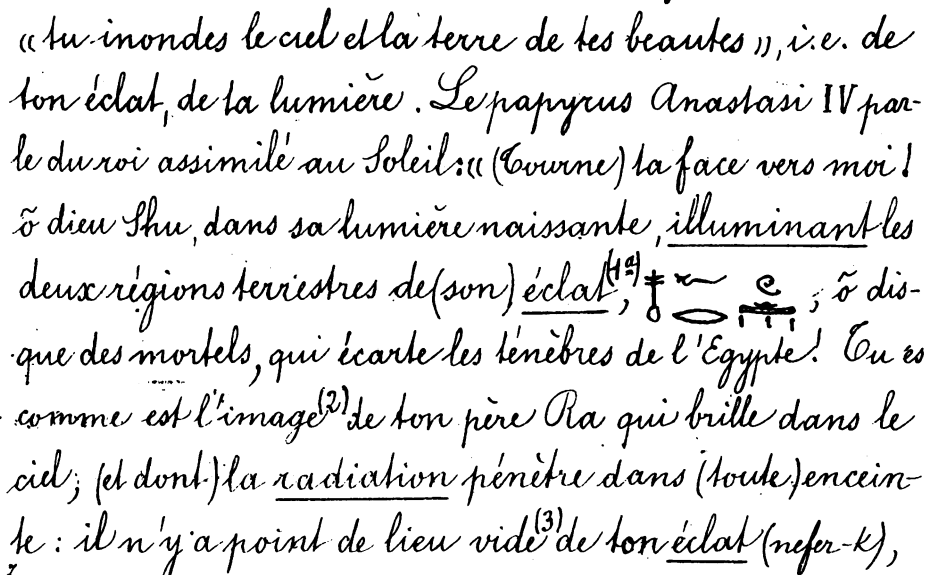 « tu inondes le ciel et la terre de tes beautes », i.e. de
ton éclat, de ta lumière. Le papyrus Anastasi IV par-
le du roi assimilé au Soleil: « (Tourne) ta face vers moi!
õ dieu Shu, dans sa lumière naissante, illuminant les
deux régions terrestres de (son) éclat(1a), ; õ dis-
que des mortels, qui écarte les ténèbres de l'Egypte! Tu es
comme est l'image(2) de ton père Ra qui brille dans le
ciel; (et dont) la radiation pénètre dans (toute) encein-
te : il n'y a point de lieu vide(3) de ton éclat (nefer-k),